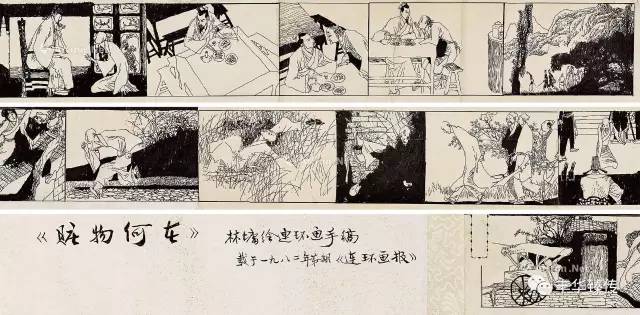 《赃物何在》
林墉绘连环画手稿
载于一九八二年第期《连环画报》
宝华臻传